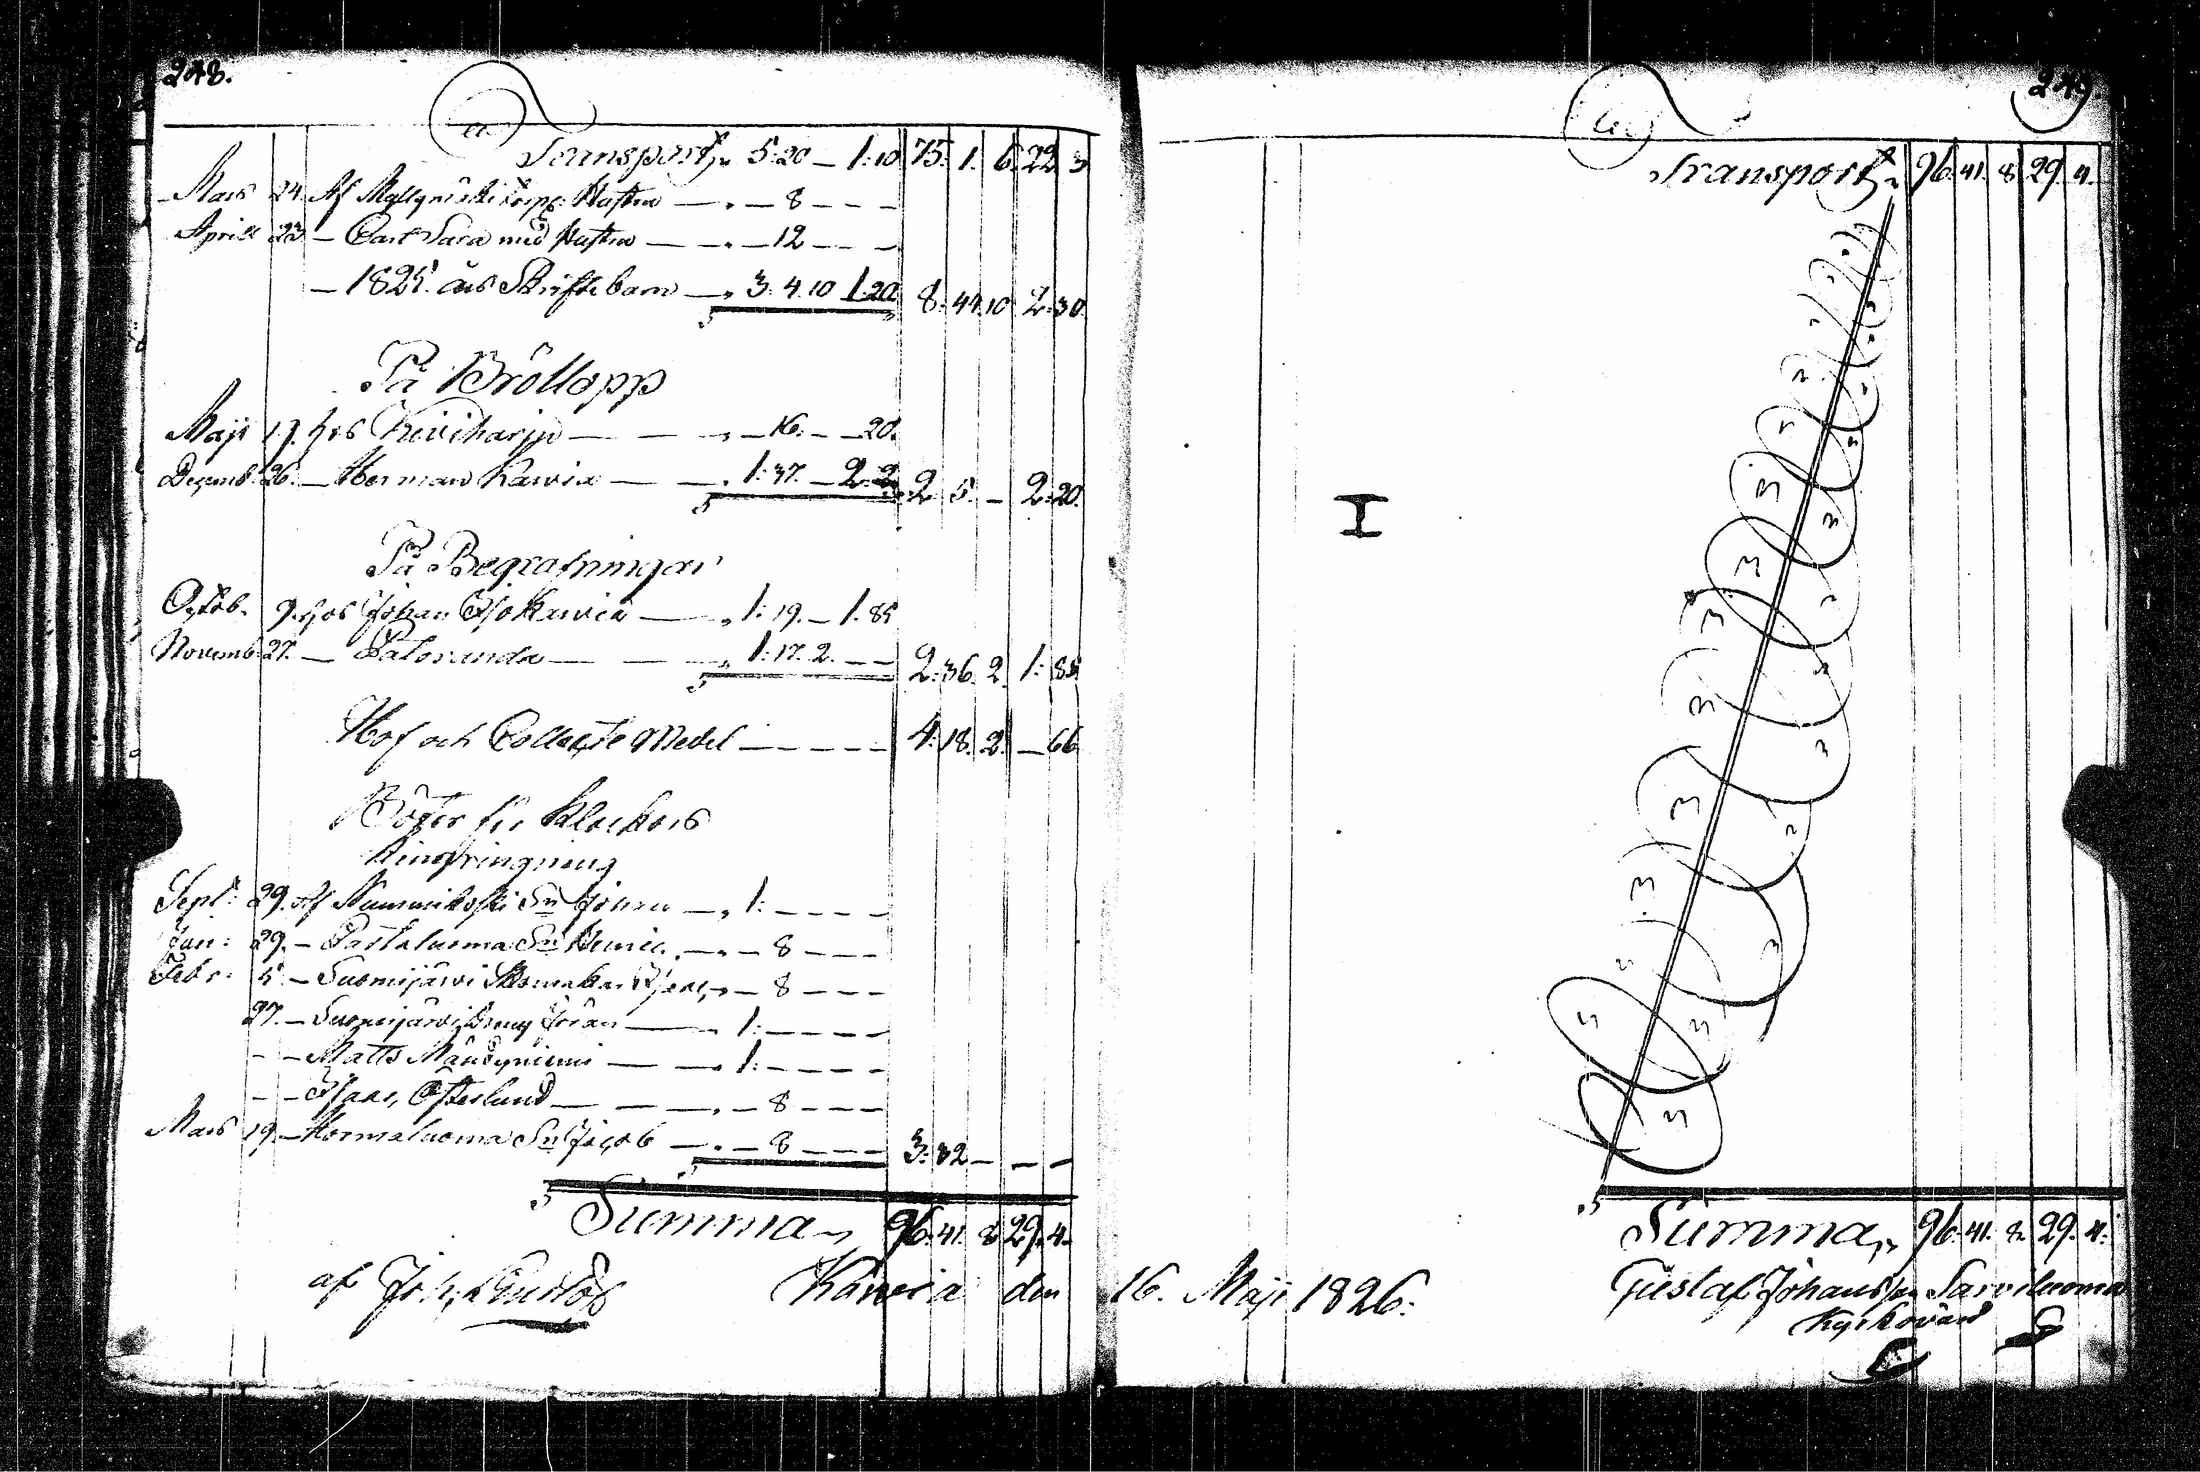 248.
Transport 5: 20 – 1: 10 75. 1. 6. 22. 3
Mars 24. Af Hustru — 8 – – –
Aprill 23 – Carl Sara med Hustru — 12 – – –
– 1825 års Skriftebarn — 3. 4. 10 1. 20 8. 44. 10 2. 30.
På Bröllopp
Maji 17. hos Kiviharju — — — 16. – – 20.
Decemb. 26. – Herman Kauvia — — 1: 37. – 2. 2. 5. – 2: 20.
På Begrafningar
Octob. 9. hos Johan — 1: 19. – 1. 85
Novemb. 27. – Paloranda — — 1: 17. 2. – – 2: 36. 2. 1: 85
Hof och Collecte Medel – – – – – 4. 18. 2. – 66
Böter för Klockors
Ringning
Sept: 29. Af Nummikoski Sn Johan — 1: – – – –
Jan: 29. – Sn Henric — – 8 – – –
Febr. 5. – Suomijärvi — 8 – – –
27. – Suomijärvi Dreng Jöran — 1: – – – –
– – Matts Mändyniemi — 1: – – – –
– – Isaac Österlund — — – 8 – – –
Mars 19. – Hormaluoma Sn Jacob — – 8 – – – 3: 32 – – –
Summa 96. 41. 8. 29. 4.
af Joh. Kauvia den
249.
Transport 96. 41. 8. 29. 4.
Summa 96. 41. 8. 29. 4.
16. Maji 1826. Gustaf Johansson Sarviluoma
Kyrkovärd